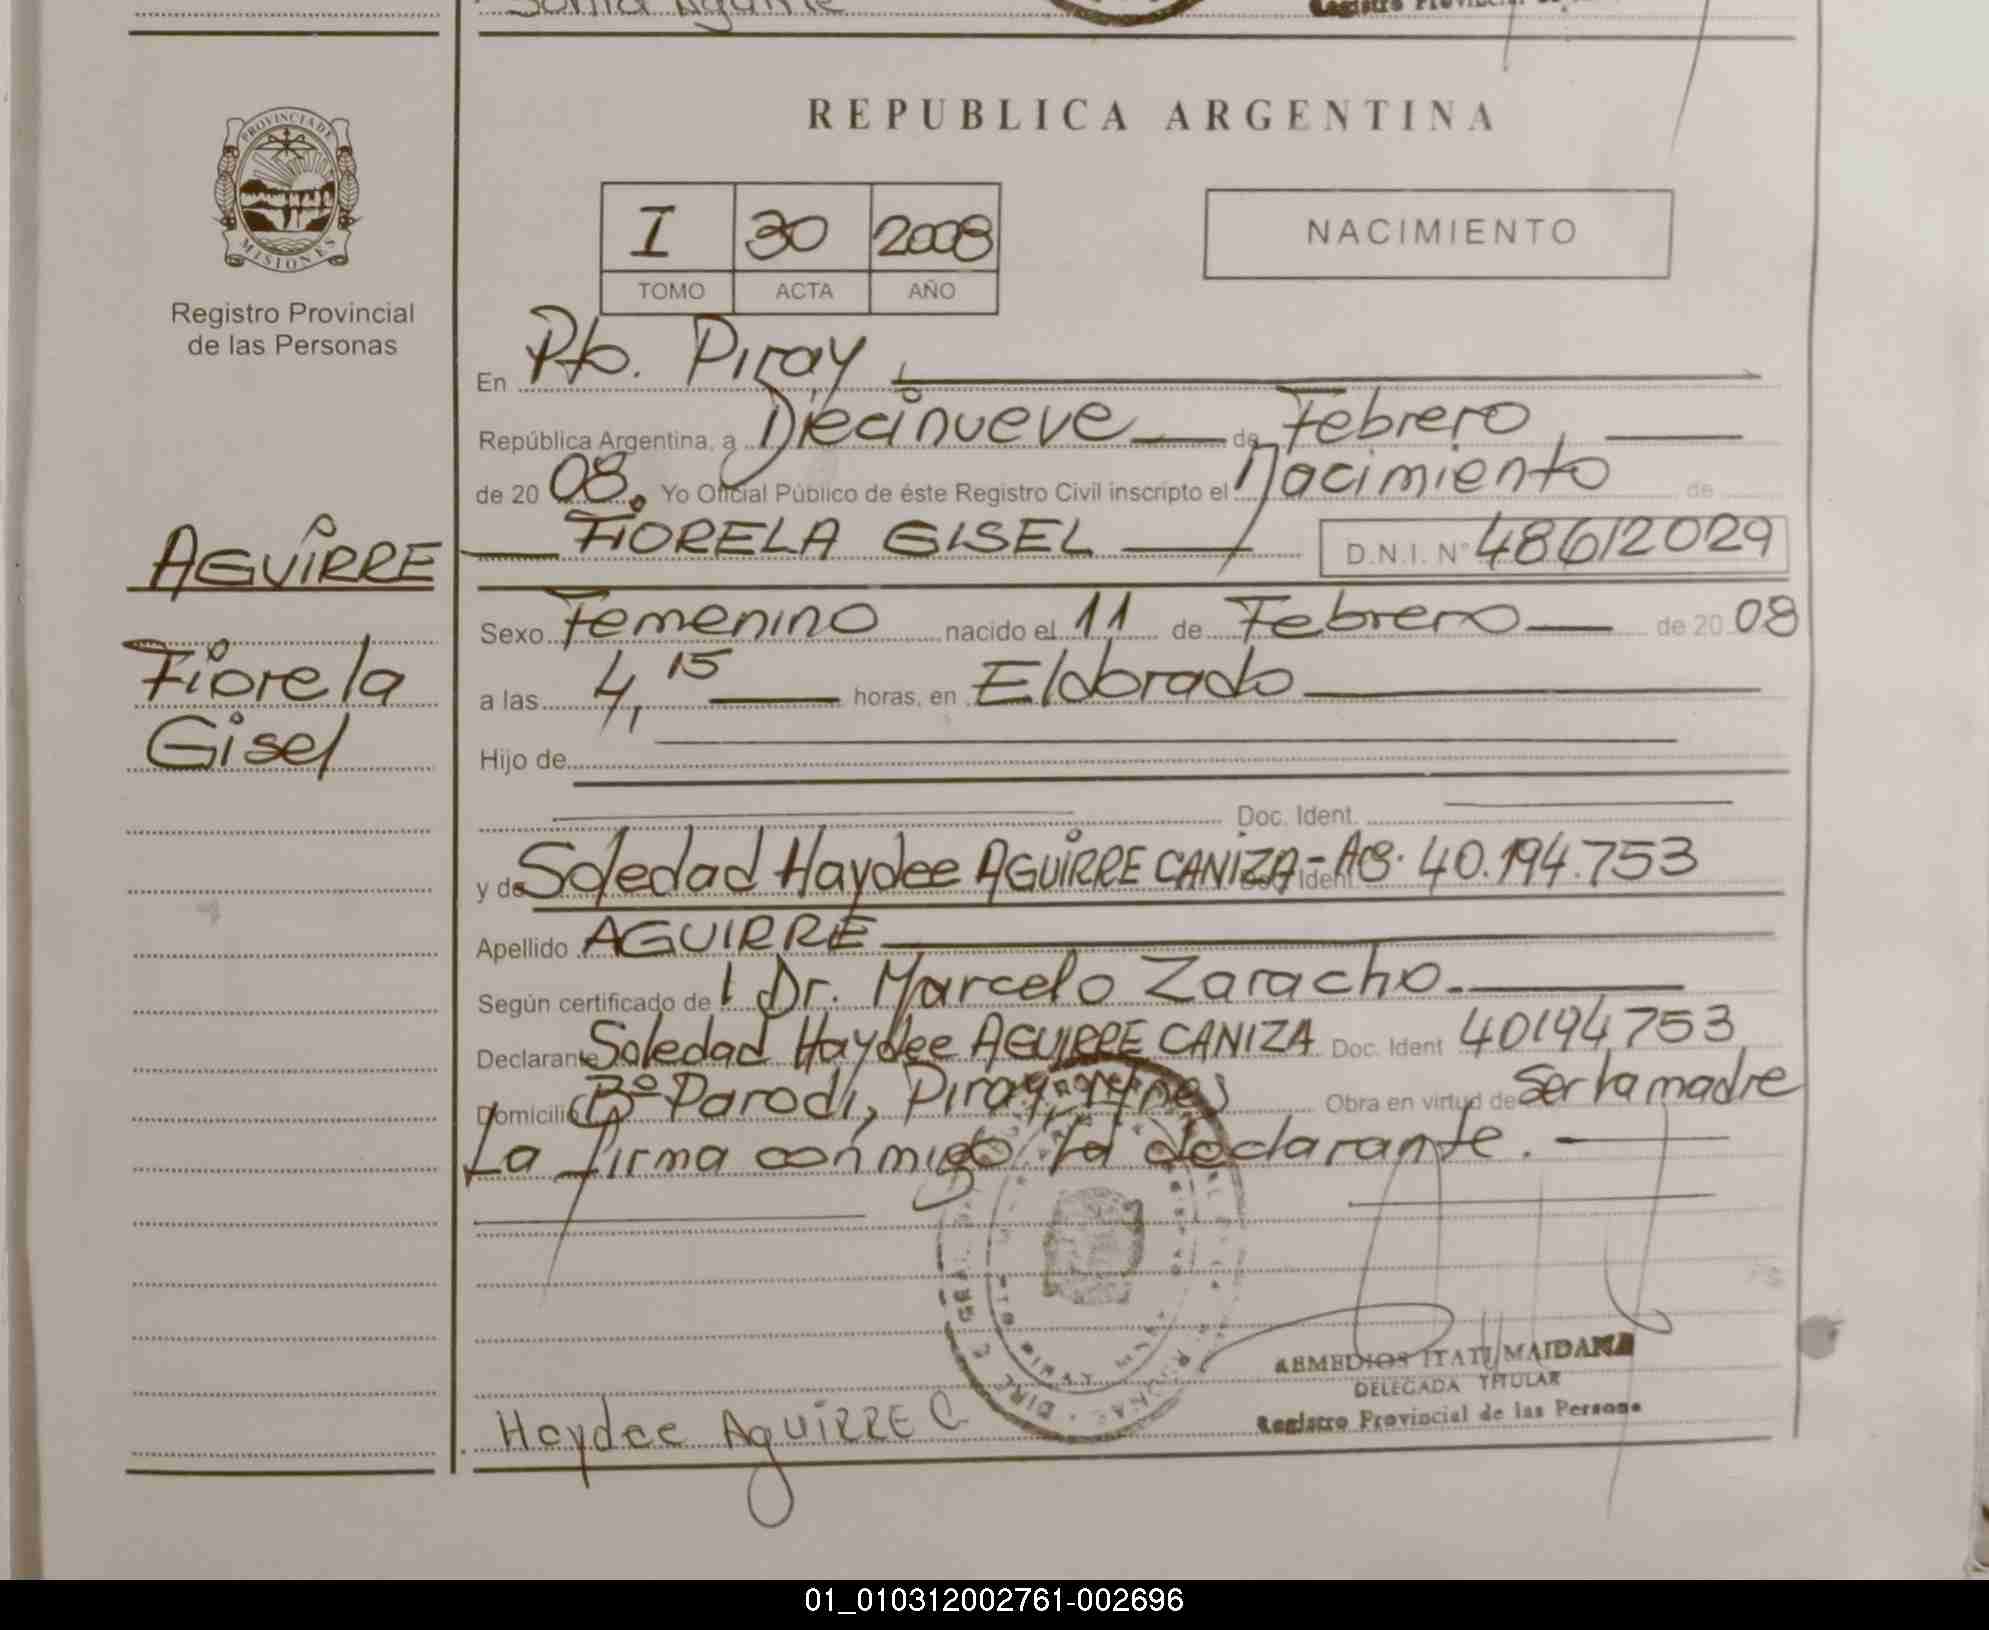 REPUBLICA ARGENTINA
PROVINCIA DE
MISIONES
Registro Provincial
de las Personas
I 30 2008
TOMO ACTA AÑO
NACIMIENTO
En Pto. Piray
República Argentina, a Diecinueve de Febrero
de 20 08. Yo Oficial Público de éste Registro Civil inscripto el Nacimiento de
AGUIRRE
FIORELA GISEL D.N.I. Nº 48612029
Fiorela
Gisel
Sexo Femenino nacido el 11 de Febrero de 20 08
a las 4,15 horas, en Eldorado
Hijo de
Doc. Ident.
y de Soledad Haydee AGUIRRE CANIZA - Doc. Ident. 40.194.753
Apellido AGUIRRE
Según certificado de Dr. Marcelo Zaracho.
Declarante Soledad Haydee AGUIRRE CANIZA Doc. Ident 40194753
Domicilio Bº Parodi, Piray, Mnes Obra en virtud de Ser la madre
La firma conmigo la declarante.
Haydee AGUIRRE C
ITATI MAIDANA
DELEGADA TITULAR
Registro Provincial de las Persona
01_010312002761-002696